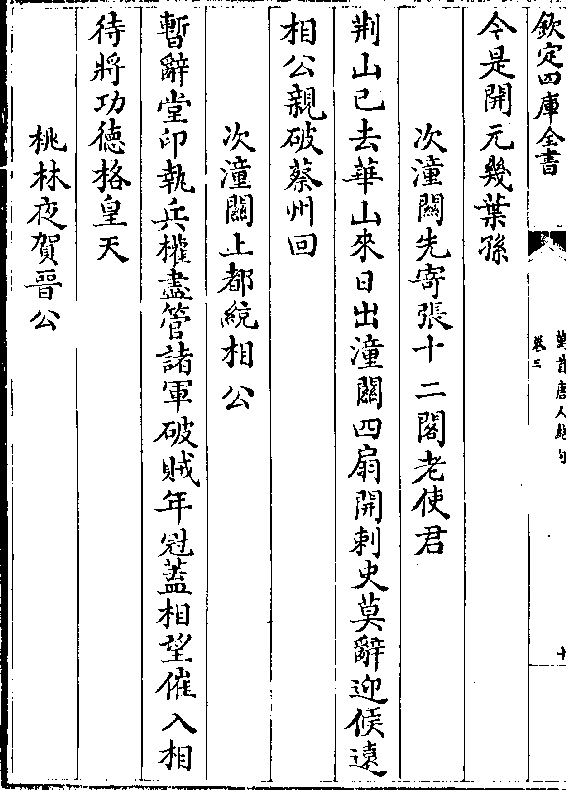 欽定四庫全書
萬首唐人絶句
卷三
十
今是開元幾葉孫
次潼關先寄張十二閣老使君
荆山已去華山來日出潼關四扇開刺史莫辭迎候遠
相公親破蔡州回
次潼關上都統相公
暫辭堂印執兵權盡管諸軍破賊年冠蓋相望催入相
待將功徳格皇天
桃林夜賀晉公